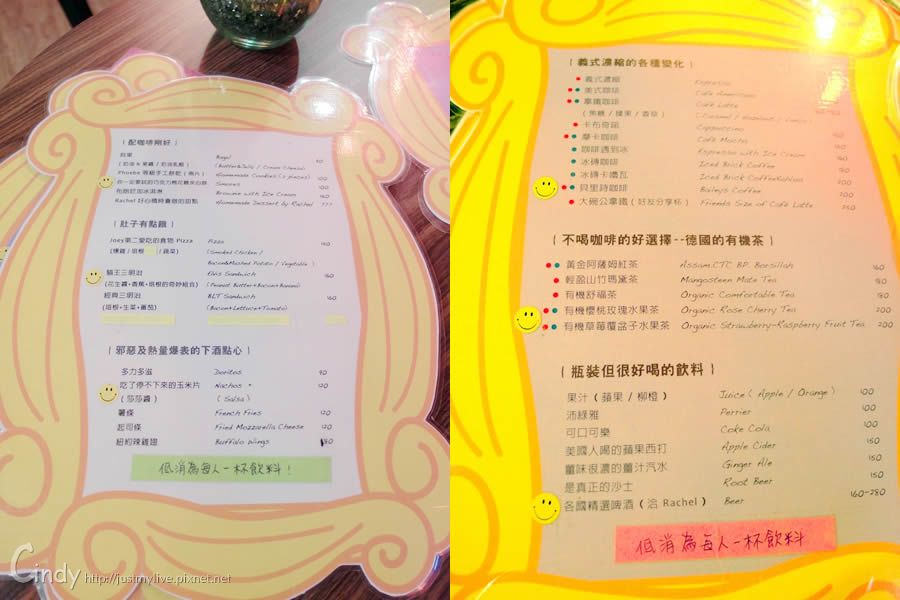 ( 配咖啡剛好 )
貝果 Bagel
(奶油&果醬 / 奶油乳酪) (Butter&Jelly / Cream Cheese)
Phoebe 等級手工餅乾 (兩片) Homemade Cookies (2 pieces) 100
Smores 100
布朗尼加冰淇淋 Brownie with Ice Cream
Rachel 好心情時會做的甜點 Homemade Dessert by Rachel ???
( 肚子有點餓 )
Joey第二愛吃的食物 Pizza Pizza
(Smoked Chicken /
Bacon&Mashed Potato / Vegetable)
貓王三明治 Elvis Sandwich 160
(花生醬+香蕉+培根的奇妙組合) (Peanut Butter+Bacon+Banana)
經典三明治 BLT Sandwich 160
(培根+生菜+番茄) (Bacon+Lettuce+Tomato)
( 邪惡及熱量爆表的下酒點心 )
多力多滋 Doritos 90
吃了停不下來的玉米片 Nachos 120
(莎莎醬) (Salsa)
薯條 French Fries 120
起司條 Fried Mozzarella Cheese 120
紐約辣雞翅 Buffalo Wings
低消為每人一杯飲料！
( 義式濃縮的各種變化 )
義式濃縮 Espresso
美式咖啡 Café Americano
拿鐵咖啡 Café Latte
(焦糖 / 榛果 / 香草) (Caramel / Hazelnut / Vanilla)
卡布奇諾 Cappuccino
摩卡咖啡 Café Mocha
咖啡遇到冰 Espresso with Ice Cream 180
冰磚咖啡 Iced Brick Coffee 180
冰磚卡嚕瓦 Iced Brick CoffeeKahlua 200
貝里詩咖啡 Baileys Coffee 200
大碗公拿鐵 (好友分享杯) Friends Size of Café Latte 250
( 不喝咖啡的好選擇--德國的有機茶 )
黃金阿薩姆紅茶 Assam CTC BP. Borsillah 160
輕盈山竹瑪黛茶 Mangosteen Mate Tea 180
有機舒福茶 Organic Comfortable Tea 180
有機櫻桃玫瑰水果茶 Organic Rose Cherry Tea 200
有機草莓覆盆子水果茶 Organic Strawberry-Raspberry Fruit Tea 200
( 瓶裝但很好喝的飲料 )
果汁 ( 蘋果 / 柳橙 ) Juice ( Apple / Orange ) 100
沛綠雅 Perrier 100
可口可樂 Coke Cola 100
美國人喝的蘋果西打 Apple Cider 150
薑味很濃的薑汁汽水 Ginger Ale 150
是真正的沙士 Root Beer 150
各國精選啤酒 ( 洽 Rachel ) Beer 160-280
低消為每人一杯飲料
Cindy http://justmylive.pixnet.net